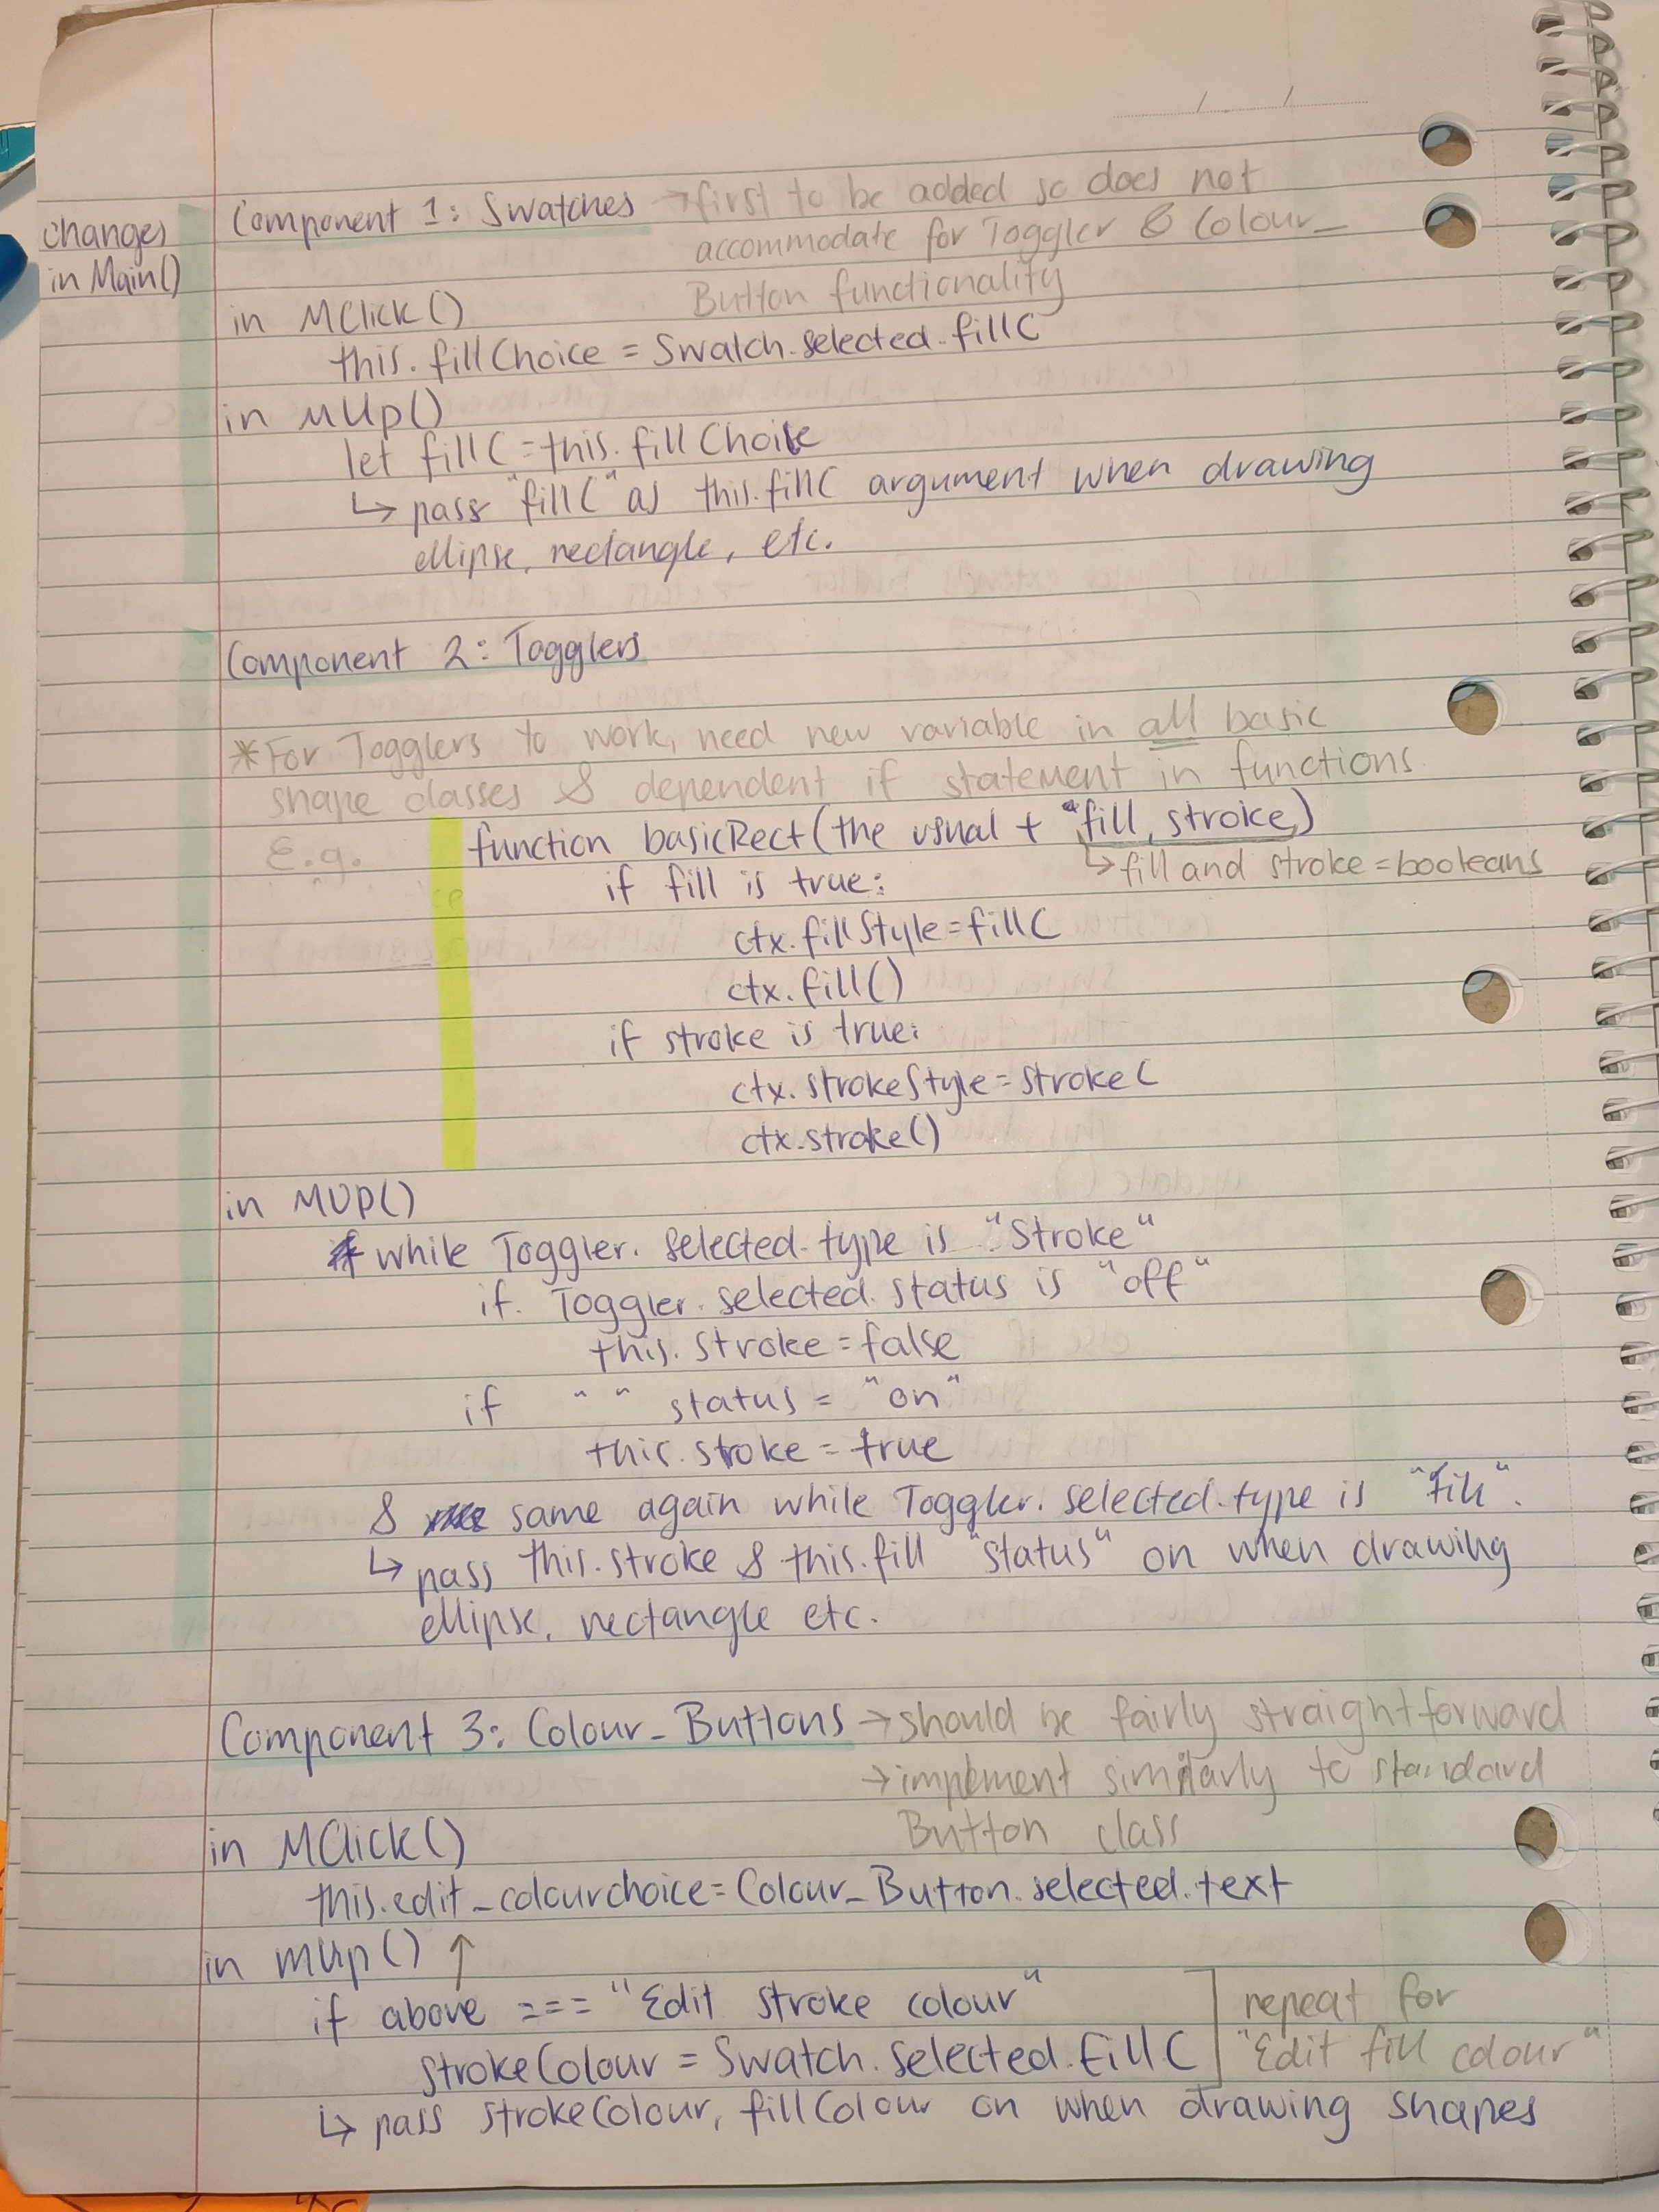 changes
in Main()
Component 1: Swatches → first to be added so does not
accommodate for Toggler & Colour_
Button functionality
in MClick()
this.fillChoice = Swatch.selected.fillC
in MUp()
let fillC = this.fillChoice
↳ pass "fillC" as this.fillC argument when drawing
ellipse, rectangle, etc.
Component 2: Togglers
*For Togglers to work, need new variable in all basic
shape classes & dependent if statement in functions
E.g. function basicRect(the usual + fill, stroke)
↳ fill and stroke = booleans
if fill is true:
ctx.fillStyle = fillC
ctx.fill()
if stroke is true:
ctx.strokeStyle = strokeC
ctx.stroke()
in MUP()
while Toggler.selected.type is "Stroke"
if Toggler.selected.status is "off"
this.stroke = false
if " " status = "on"
this.stroke = true
& same again while Toggler.selected.type is "Fill".
↳ pass this.stroke & this.fill "status" on when drawing
ellipse, rectangle etc.
Component 3: Colour_Buttons → should be fairly straightforward
→ implement similarly to standard
Button class
in MClick()
this.edit_colourchoice = Colour_Button.selected.text
in mUp() ↑
if above === "Edit stroke colour"
strokeColour = Swatch.selected.fillC
repeat for
"Edit fill colour"
↳ pass strokeColour, fillColour on when drawing shapes